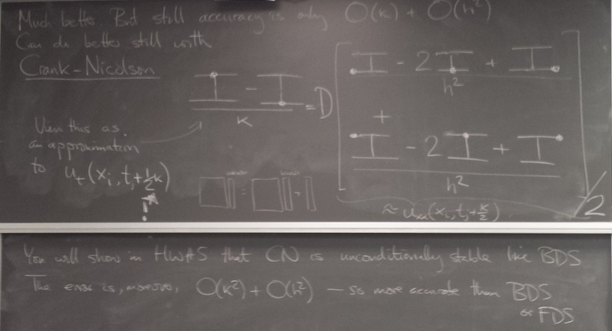 Much better. But still accuracy is only O(k) + O(h²)
Can do better still with
Crank-Nicolson
- = D
k
- 2 +
h²
+
- 2 +
h²
/2
View this as
an approximation
to u_t(x_i, t_j + ½k)
≈ u_xx(x_i, t_j + k/2)
You will show in HW#5 that CN is unconditionally stable like BDS
The error is, moreover, O(k²) + O(h²) — so more accurate than BDS
or FDS